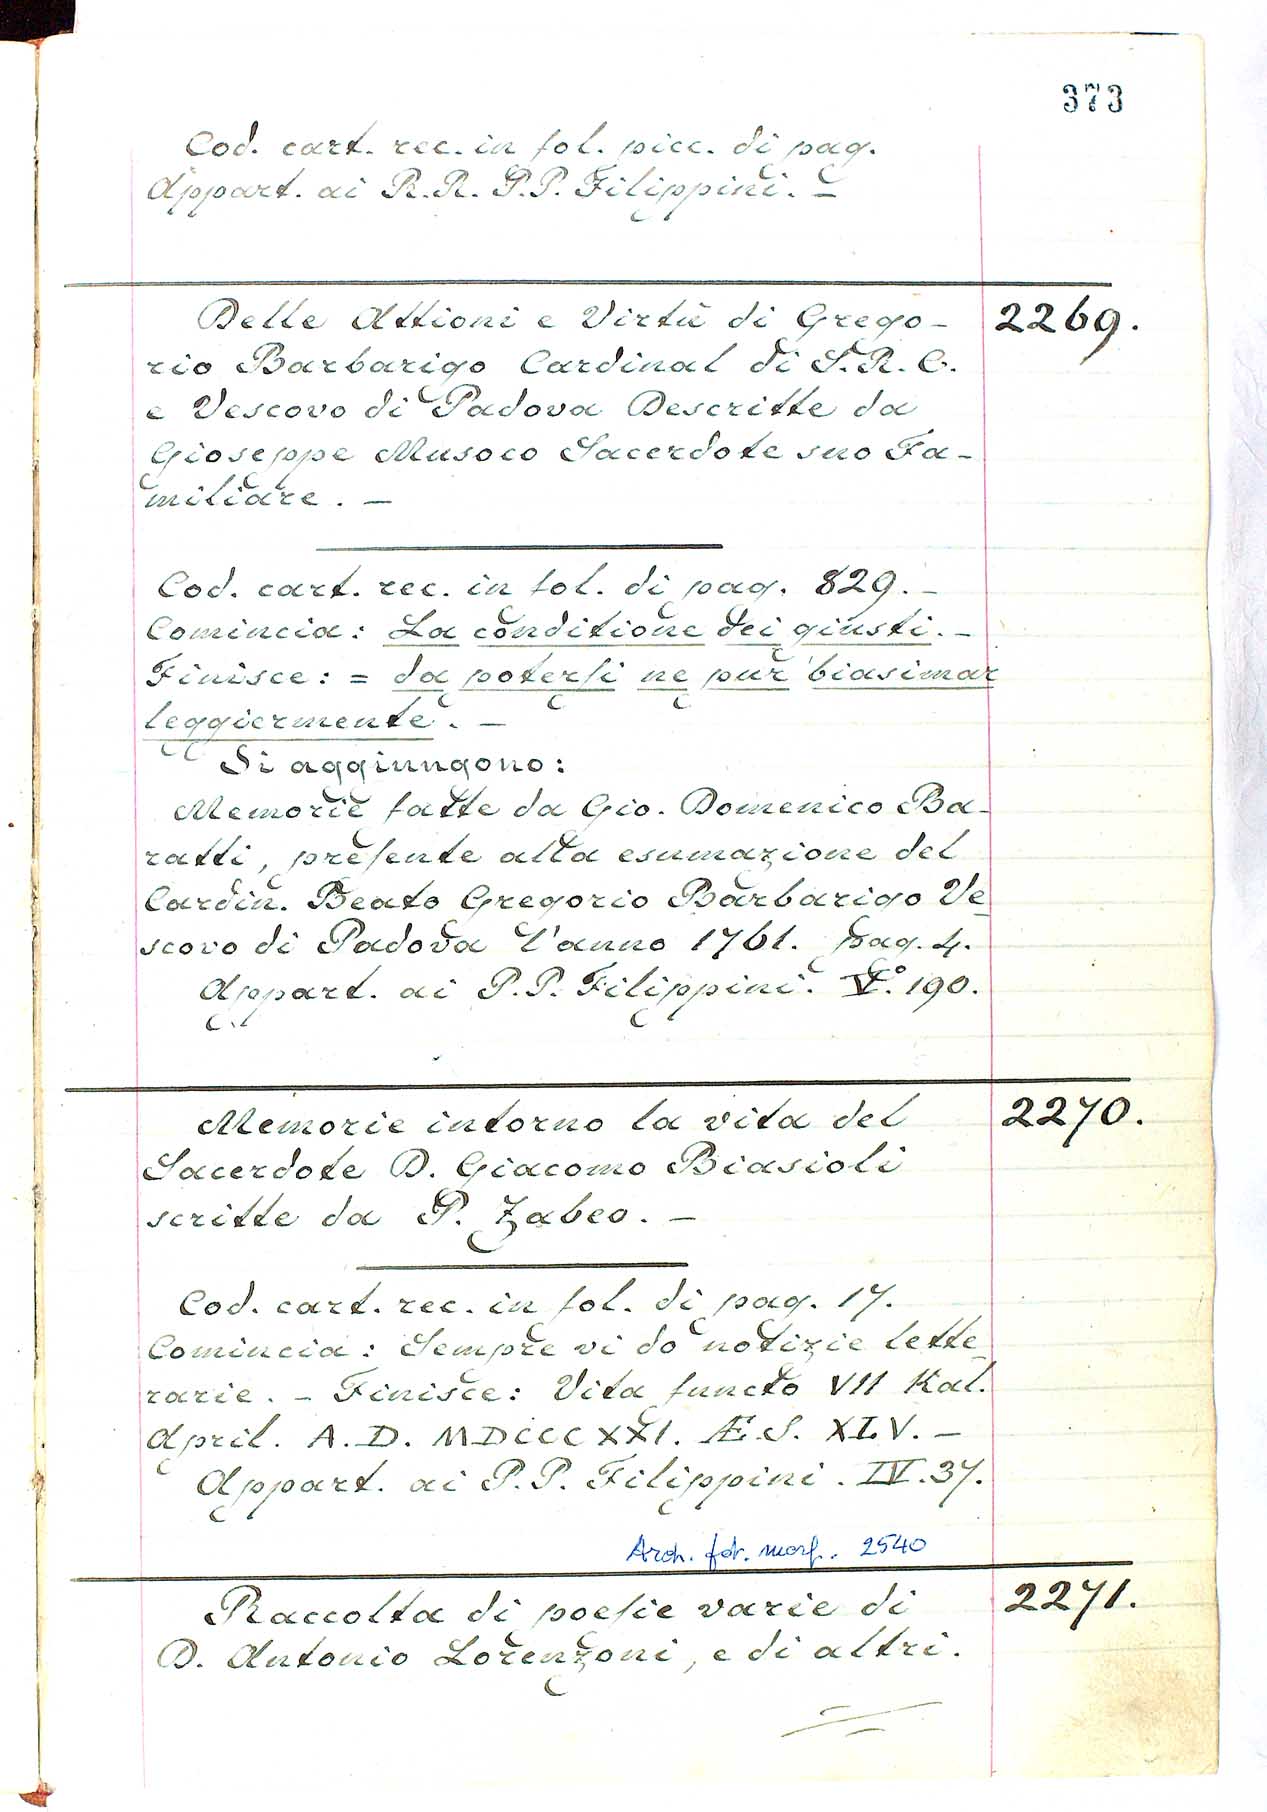 373
Cod. cart. rec. in fol. picc. di pag.
Appart. ai R.R. P.P. Filippini. –
Delle Attioni e Virtù di Grego- 2269.
rio Barbarigo Cardinal di S.R.C.
e Vescovo di Padova Descritte da
Gioseppe Musoco Sacerdote suo Fa-
miliare. –
Cod. cart. rec. in fol. di pag. 829. –
Comincia: La conditione dei giusti. –
Finisce: = da poterſi ne pur biasimar
leggiermente. –
Si aggiungono:
Memorie fatte da Gio. Domenico Ba-
ratti, preſente alla esumazione del
Cardin. Beato Gregorio Barbarigo Ve-
scovo di Padova l'anno 1761. pag. 4.
Appart. ai P.P. Filippini. V.º 190.
Memorie intorno la vita del 2270.
Sacerdote D. Giacomo Biasioli
scritte da P. Zabeo. –
Cod. cart. rec. in fol. di pag. 17.
Comincia: Sempre vi do notizie lette-
rarie. – Finisce: Vita functo VII Kal.
April. A.D. MDCCCXXI. Æ.S. XLV. –
Appart. ai P.P. Filippini. IV.37.
Arch. fot. morf. 2540
Raccolta di poeſie varie di 2271.
D. Antonio Lorenzoni, e di altri.